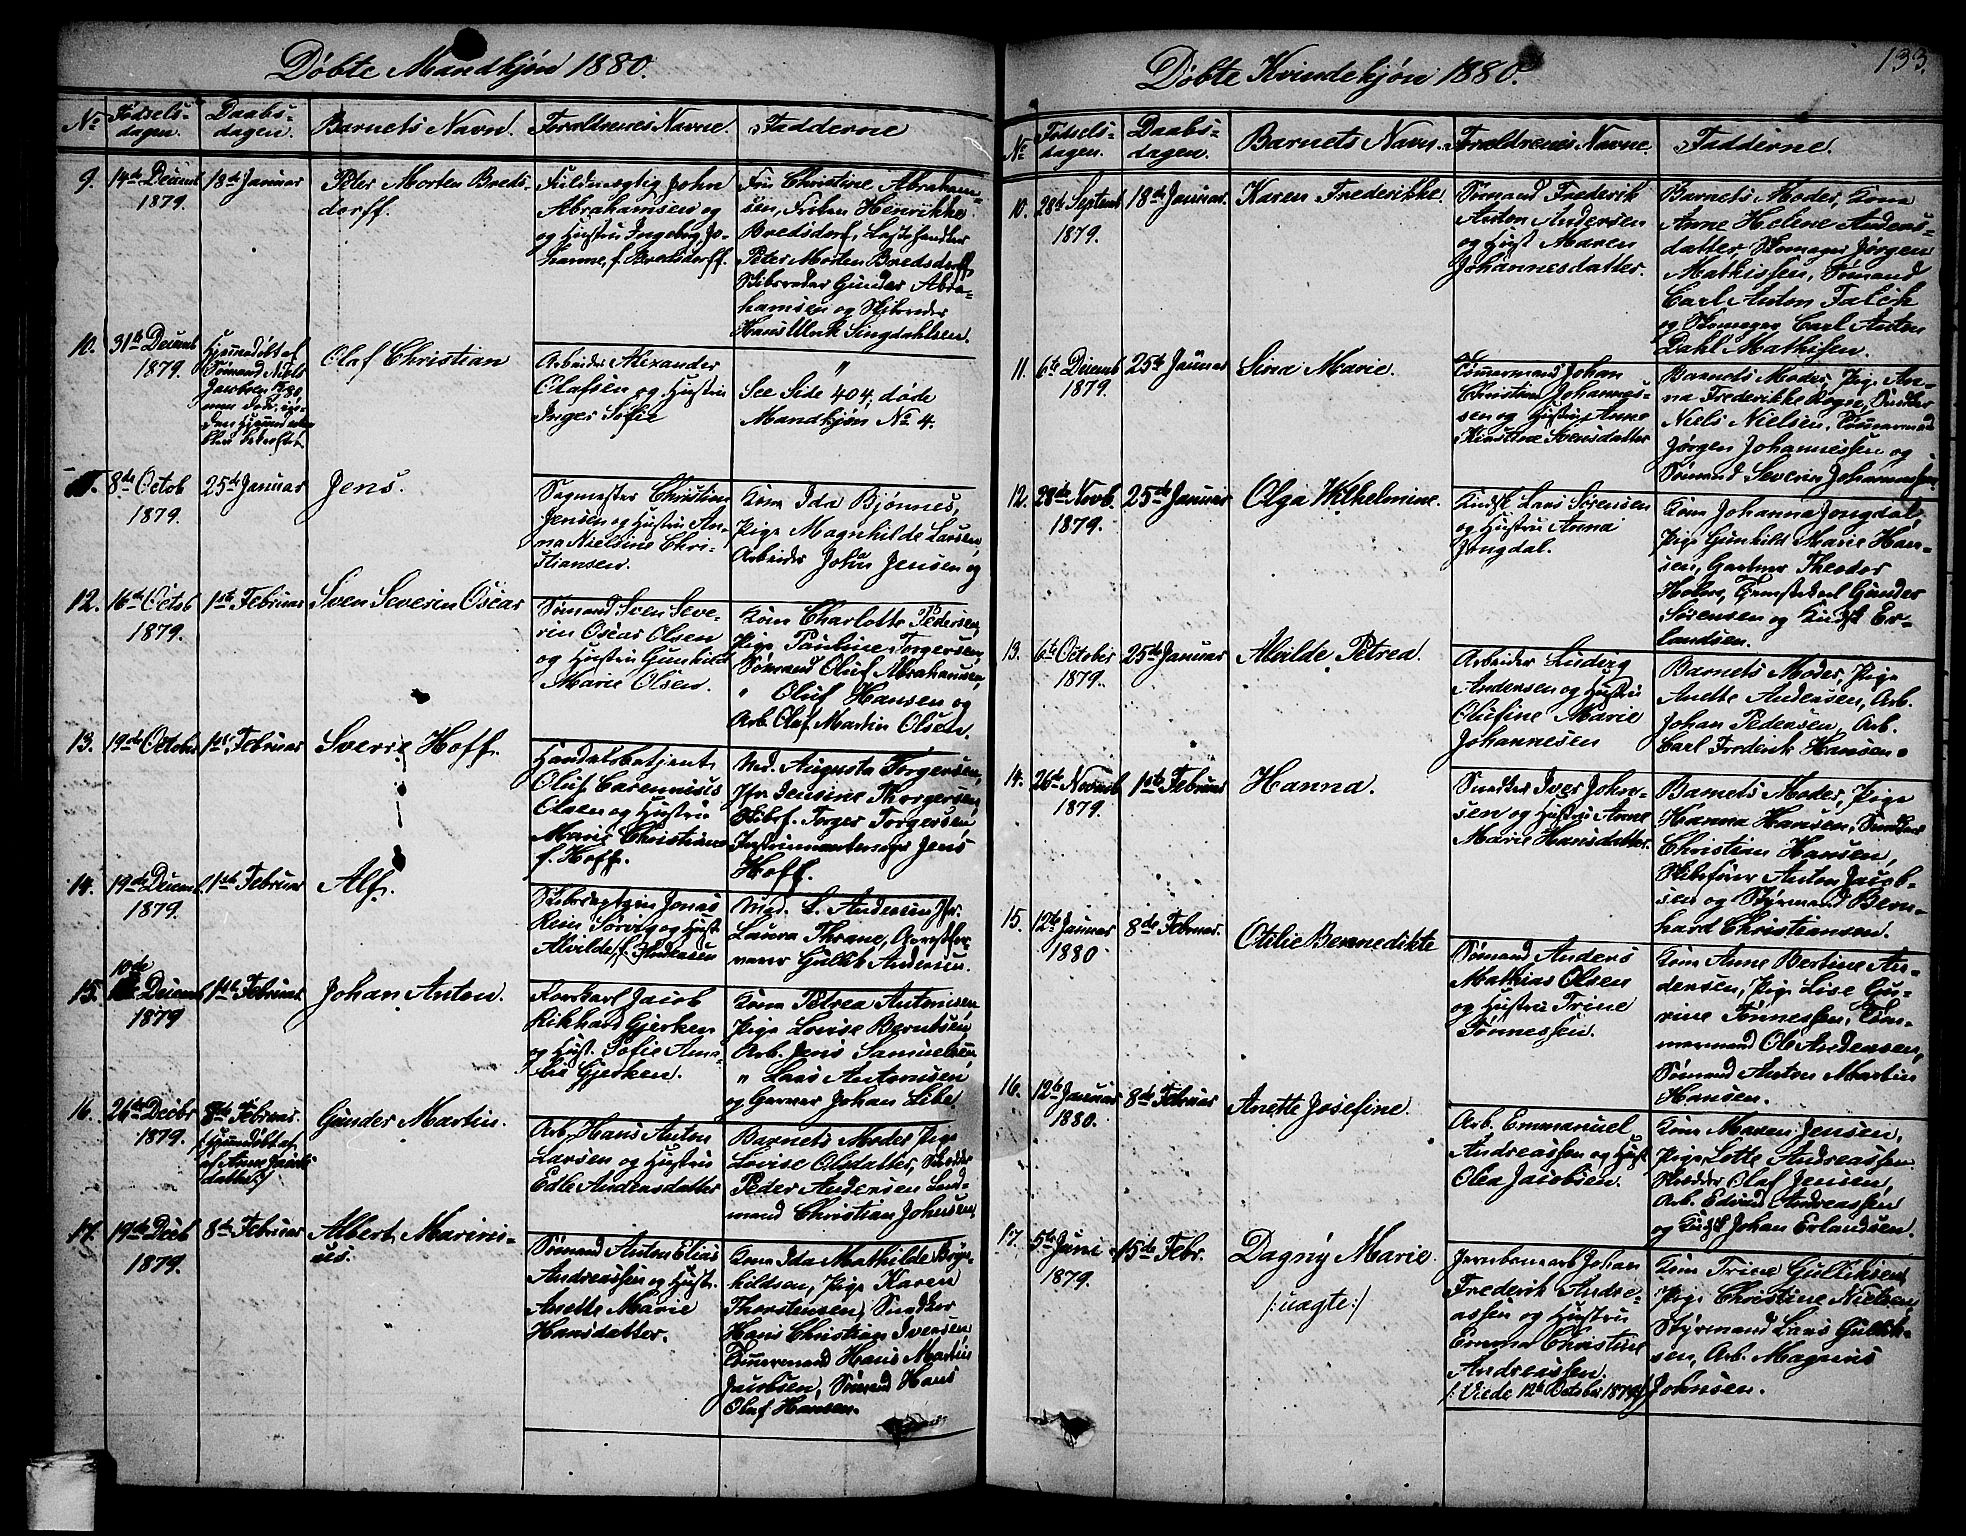 Døbte Mandkjøn 1880.
No
Fødsels-
dagen.
Daabs-
dagen.
Barnets Navn.
Forældrenes Navne.
Fadderne
9.
14de Decemb
1879.
18de Januar
Peter Morten Breds-
dorff.
Fuldmægtig John
Abrahamsen og
og Hustru Ingeborg Jo-
hanne, f. Bredsdorff.
Fru Christine Abraham-
sen, Frøken Henrikke
Bredsdorf,
Peter Morten Bredsdorff,
Skibsreder Gunder Abra-
hamsen og Skibsreder
Hans Ulrik Singdahlsen.
10.
31te Decemb
1879.
Hjemmedøbt af
Sømand Niels
Jacobsen
Olaf Christian
Arbeider Alexander
Olafsen og Hustru
Inger Sofie
"
See Side 404, døde
Mandkjøn No 4.
11.
8de Octob
1879.
25de Januar
Jens.
Sagmester Christian
Jensen og Hustru An-
na Nielsine Chri-
stiansen.
Kone Ida Bjønnes,
Pige Magnhilde Larsen,
Arbeider John Jensen og
12.
16de Octob
1879.
1ste Februar
Sven Severin Oscar
Sømand Sven Seve-
rin Oscar Olsen
og Hustru Gunhild
Marie Olsen.
Kone Charlotte Pedersen,
Pige Pauline Torgersen,
Sømand Oluf Abrahamsen,
" Oluf Hansen og
Arb. Olaf Martin Olsen.
13.
19de October
1ste Februar
Sverre Hoff.
Handelsbetjent
Oluf Carennius
Olsen og Hustru
Marie Christiane
f. Hoff.
Mad. Augusta Torgersen,
Jfr. Jensine Thorgersen,
Skibsf. Torger Torgersen,
Instrumentmager Jens
Hoff.
14.
19de Decemb.
1879.
1ste Februar
Alf.
Skibscaptein Jonas
Rein Sørvig og Hust.
Alvilde, f.
Mad. L. Andersen, Jfr.
Laura Thrane, Arrestfor-
varer Gullik Andersen.
15.
10de
Decemb
1879
1ste Februar
Johan Anton.
Korskarl Jacob
Rikhard Gjerken
og Hust. Sofie Ama-
lie Gjerken.
Kone Petrea Antonisen,
Pige Lovise Berntsen,
Arb. Jens Samuelsen,
" Lars Antonisen
og Garver Johan Libe.
16.
26de Decbr
1879.
8de Februar.
(Hjemmedøbt af
af Anne Jacobs
datter.)
Gunder Martin.
Arb. Hans Anton
Larsen og Hustru
Edle Andersdatter
Barnets Moder, Pige
Lovise Olsdatter, Skræder
Peder Andersen
mand Christian Johnsen.
17.
19de Decb
1879.
8de Februar
Albert Marini-
us.
Sømand Anton Elias
Andreassen og Hust.
Anette Marie
Hansdatter.
Kone Ida Mathilde Bryn-
hildsen, Pige Karen
Thorstensen, Snedker
Hans Christian Iversen,
Tømmermand Hans Martin
Jacobsen, Sømand Hans
Olaf Hansen.
Døbte Kvindekjøn 1880.
133.
No
Fødsels-
dagen.
Daabs-
dagen.
Barnets Navn.
Forældrenes Navne.
Fadderne.
10.
28de Septemb
1879.
18de Januar.
Karen Frederikke.
Sømand Frederik
Anton Andersen
og Hust. Maren
Johannesdatter.
Barnets Moder, Kone
Anne Helene Anders-
datter, Skomager Jørgen
Mathissen, Sømand
Carl Anton Falck
og Skomager Carl Anton
Dahl Mathisen.
11.
6te Decemb
1879.
25de Januar
Sina Marie.
Tømmermand Johan
Christian Johannes-
sen og Hustru Anne
Kirstine Svensdatter
Barnets Moder, Pige An-
na Frederikke Rogne, Snedker
Niels Nielsen, Tømmermand
Jørgen Johannessen og
Sømand Severin Johannessen
12.
28de Novb.
1879.
25de Januar
Olga Wilhelmine.
Kudsk Lars Sørensen
og Hustru Anna
Jongdal.
Kone Johanna Jongdal,
Pige Gunhild Marie Han-
sen, Gartner Theodor
Holm, Gunder
Sørensen og Kudsk Er-
landsen.
13.
6te October
1879.
25de Januar
Alvilde Petrea.
Arbeider Ludvig
Andersen og Hustru
Olufine Marie
Johannesen
Barnets Moder, Pige
Anette Andersen, Arb.
Johan Pedersen, Arb.
Carl Frederik Hansen.
14.
26de Novemb
1879.
1ste Februar
Hanna.
Snedker Iver John-
sen og Hustru Anne
Marie Hansdatter.
Barnets Moder, Pige
Hanna Hansen, Snedker
Christian Hansen,
Skibsfører Anton Jacob-
sen og Styrmand Bern-
hard Christiansen.
15.
12te Januar
1880
8de Februar.
Otilie Bennedikte
Sømand Anders
Mathias Olsen
og Hustru Trine
Tønnessen.
Kone Anne Bertine An-
dersen, Pige Lise Gu-
rine Tønnessen, Tøm-
mermand Ole Andersen,
Sømand Anton Martin
Hansen.
16.
12te Januar
1880.
8de Februar
Anette Josefine.
Arb. Emmanuel
Andreassen og Hust
Olea Jacobsen.
Kone Maren Jensen,
Pige Lotte Andreassen
Skrædder Olaf Jensen,
Arb. Edvard Andreassen
og Kudsk Johan Erlandsen.
17.
5te Juni
1879.
15de Febr.
Dagny Marie
/: uægte :/
Jernbanearb. Johan
Frederik Andre-
assen og Hustru
Emma Christine
Andreassen.
/: Viede 12te October 1879 :/
Kone Trine Gulliksen,
Pige Christine Nielsen,
Styrmand Lars Gullik-
sen, Arb. Magnus
Johnsen.